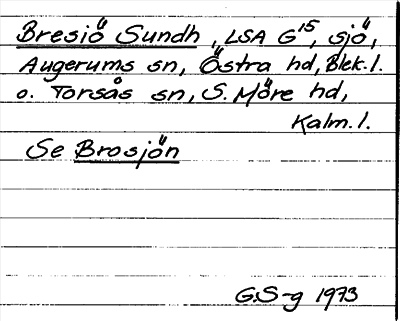 Bresiö Sundh, LSA G15, sjö,
Augerums sn, Östra hd, Blek. l.
o. Torsås sn, S. Möre hd,
Kalm. l.
Se Brosjön
G.S-g 1973